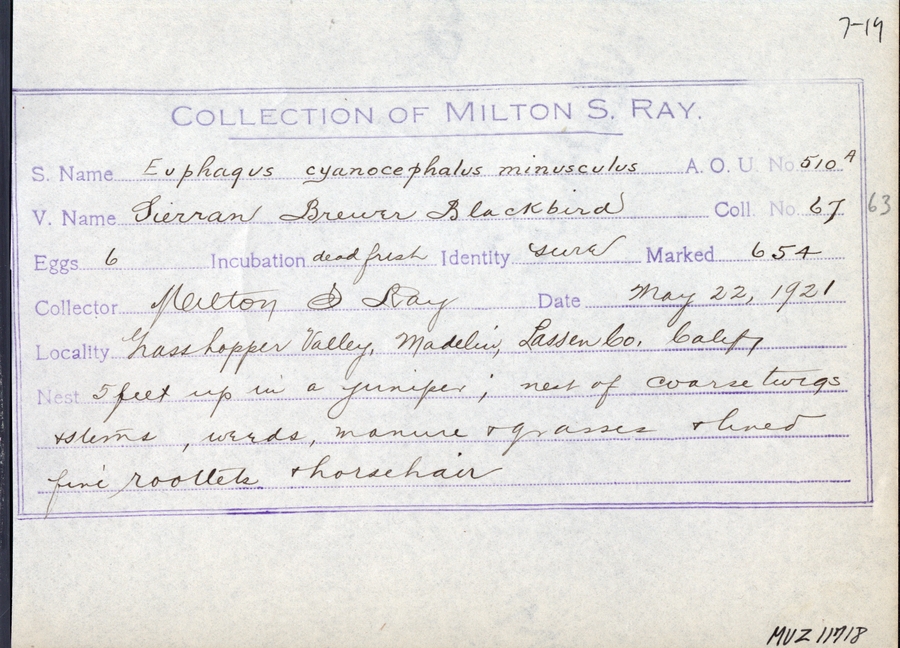 7-19
COLLECTION OF MILTON S. RAY.
S. Name Euphagus cyanocephalus minusculus A. O. U. No. 510 A
V. Name Sierran Brewer Blackbird Coll. No. 67 63
Eggs 6 Incubation dead fresh Identity sure Marked 654
Collector Milton S Ray Date May 22, 1921
Locality Grasshopper Valley, Madelin, Lassen Co. Calif,
Nest 5 feet up in a juniper; nest of coarse twigs
+ stems, weeds, manure + grasses + lined
fine rootlets + horsehair
MVZ 11718